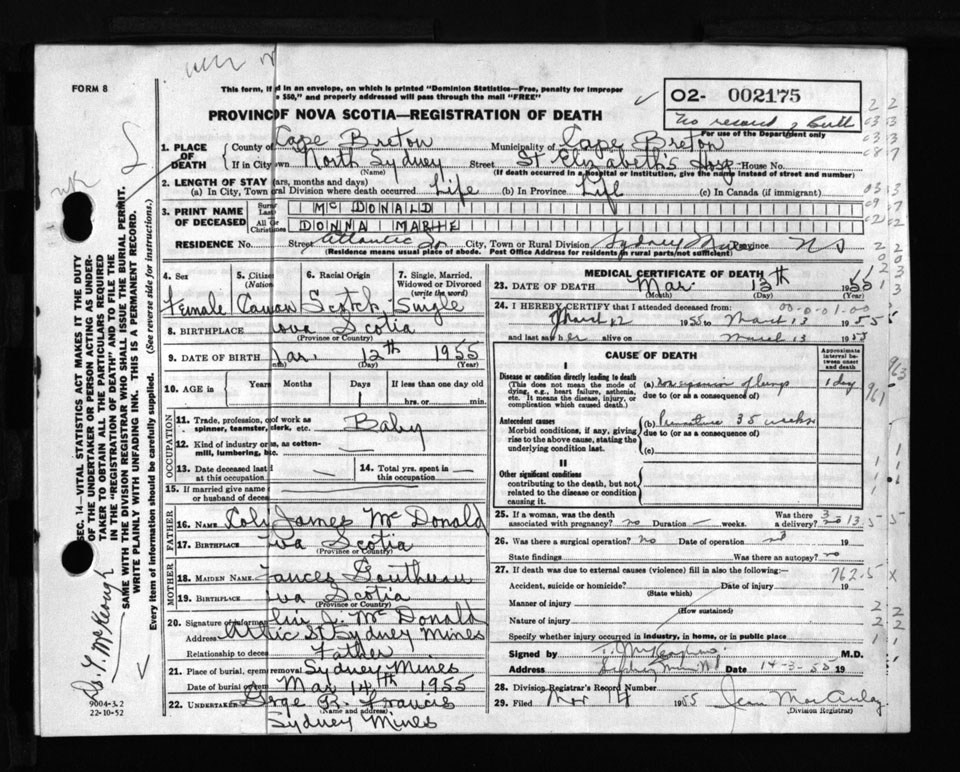 FORM 8
This form, if d in an envelope, on which is printed "Dominion Statistics—Free, penalty for improper
$50," and properly addressed will pass through the mail "FREE"
O2- 002175
No record of Birth
For use of the Department only
PROVINC OF NOVA SCOTIA—REGISTRATION OF DEATH
1. PLACE OF DEATH
County of Cape Breton Municipality of Cape Breton
If in City own North Sydney Street St Elizabeth's Hosp House No.
(Name) (If death occurred in a hospital or institution, give the name instead of street and number)
2. LENGTH OF STAY ars, months and days)
(a) In City, Town ral Division where death occurred Life (b) In Province Life (c) In Canada (if immigrant)
3. PRINT NAME OF DECEASED
Last Mc DONALD
Christian DONNA MARIE
RESIDENCE No. Street Atlantic City, Town or Rural Division Sydney Mines Province N S
(Residence means usual place of abode. Post Office Address for residents in rural parts not sufficient)
4. Sex
Female
5. Citizen
(Nation
6. Racial Origin
Scotch
7. Single, Married, Widowed or Divorced
(write the word)
Single
8. BIRTHPLACE ova Scotia
(Province or Country)
9. DATE OF BIRTH ar. 12th 1955
(Day) (Year)
10. AGE in Years Months Days If less than one day old
1 hrs. or min.
OCCUPATION
11. Trade, profession, of work as spinner, teamster, clerk, etc. Baby
12. Kind of industry or s, as cotton-mill, lumbering, etc. —
13. Date deceased last at this occupation —
14. Total yrs. spent in this occupation —
15. If married give name or husband of dece
FATHER
16. Name James Mc Donald
17. Birthplace va Scotia
(Province or Country)
MOTHER
18. Maiden Name
19. Birthplace va Scotia
(Province or Country)
20. Signature of inform J. Mc Donald
Address St Sydney Mines
Relationship to decea Father
21. Place of burial, crem removal Sydney Mines
Date of burial Mar 14th 1955
22. UNDERTAKER R. Francis
(Name and address)
Sydney Mines
MEDICAL CERTIFICATE OF DEATH
23. DATE OF DEATH Mar. 13th 1955
(Month) (Day) (Year)
24. I HEREBY CERTIFY that I attended deceased from:
March 12 1955 to March 13 1955
and last saw her alive on March 13 1955
CAUSE OF DEATH
Approximate interval between onset and death
I
Disease or condition directly leading to death
(This does not mean the mode of dying, e.g., heart failure, asthenia, etc. It means the disease, injury, or complication which caused death.)
(a) Non expansion of lungs 1 day
due to (or as a consequence of)
Antecedent causes
Morbid conditions, if any, giving rise to the above cause, stating the underlying condition last.
(b) Premature 35 weeks
due to (or as a consequence of)
(c)
II
Other significant conditions
contributing to the death, but not related to the disease or condition causing it.
25. If a woman, was the death associated with pregnancy? no Duration — weeks. Was there a delivery? no
26. Was there a surgical operation? no Date of operation 19
State findings Was there an autopsy? no
27. If death was due to external causes (violence) fill in also the following:—
762.5 x
Accident, suicide or homicide? Date of injury 19
(State which)
Manner of injury
(How sustained)
Nature of injury
Specify whether injury occurred in industry, in home, or in public place
Signed by M.D.
Address Sydney Mines Date 14-3-55 19
28. Division Registrar's Record Number
29. Filed Mar 14 1955 Jean MacAulay
(Division Registrar)
SEC. 14—VITAL STATISTICS ACT MAKES IT THE DUTY
OF THE UNDERTAKER OR PERSON ACTING AS UNDER-
TAKER TO OBTAIN ALL THE PARTICULARS REQUIRED
IN THE "REGISTRATION OF DEATH" AND TO FILE THE
SAME WITH THE DIVISION REGISTRAR WHO SHALL ISSUE THE BURIAL PERMIT.
WRITE PLAINLY WITH UNFADING INK. THIS IS A PERMANENT RECORD.
Every item of information should be carefully supplied. (See reverse side for instructions.)
Dr. T. McKeough
9004-3.2
22-10-52